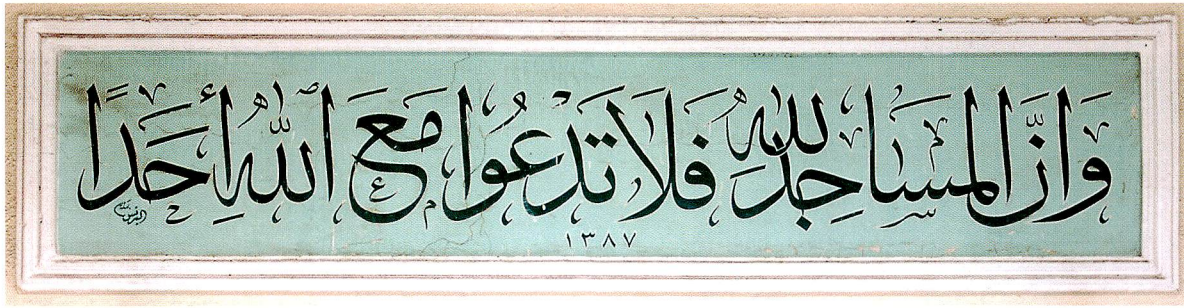 وَاَنَّ الْمَسَاجِدَ لِلّٰهِ فَلَا تَدْعُوا مَعَ اللّٰهِ أَحَدًا
١٣٨٧